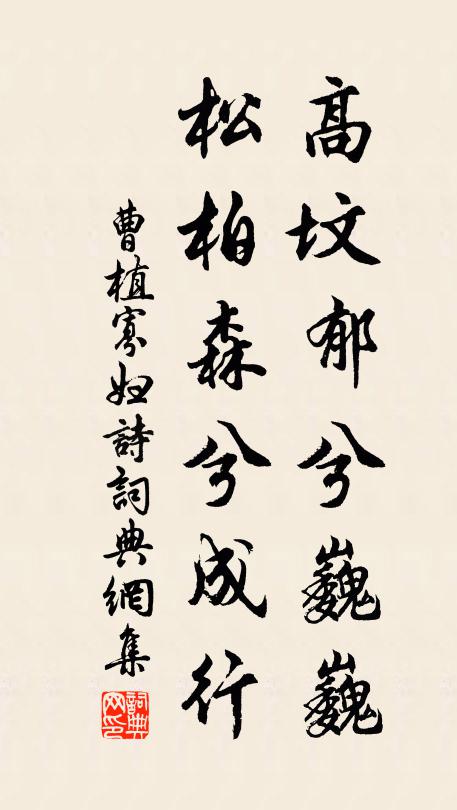 高坟郁兮巍巍
松柏森兮成行
曹植寡妇詩詞典網集
詞典网印